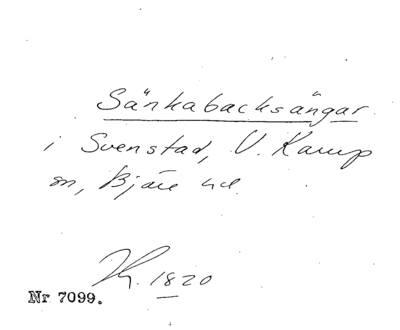 Sänkabacksängar
i Svenstad, V. Karup
sn, Bjäre hd.
1820
Nr 7099.